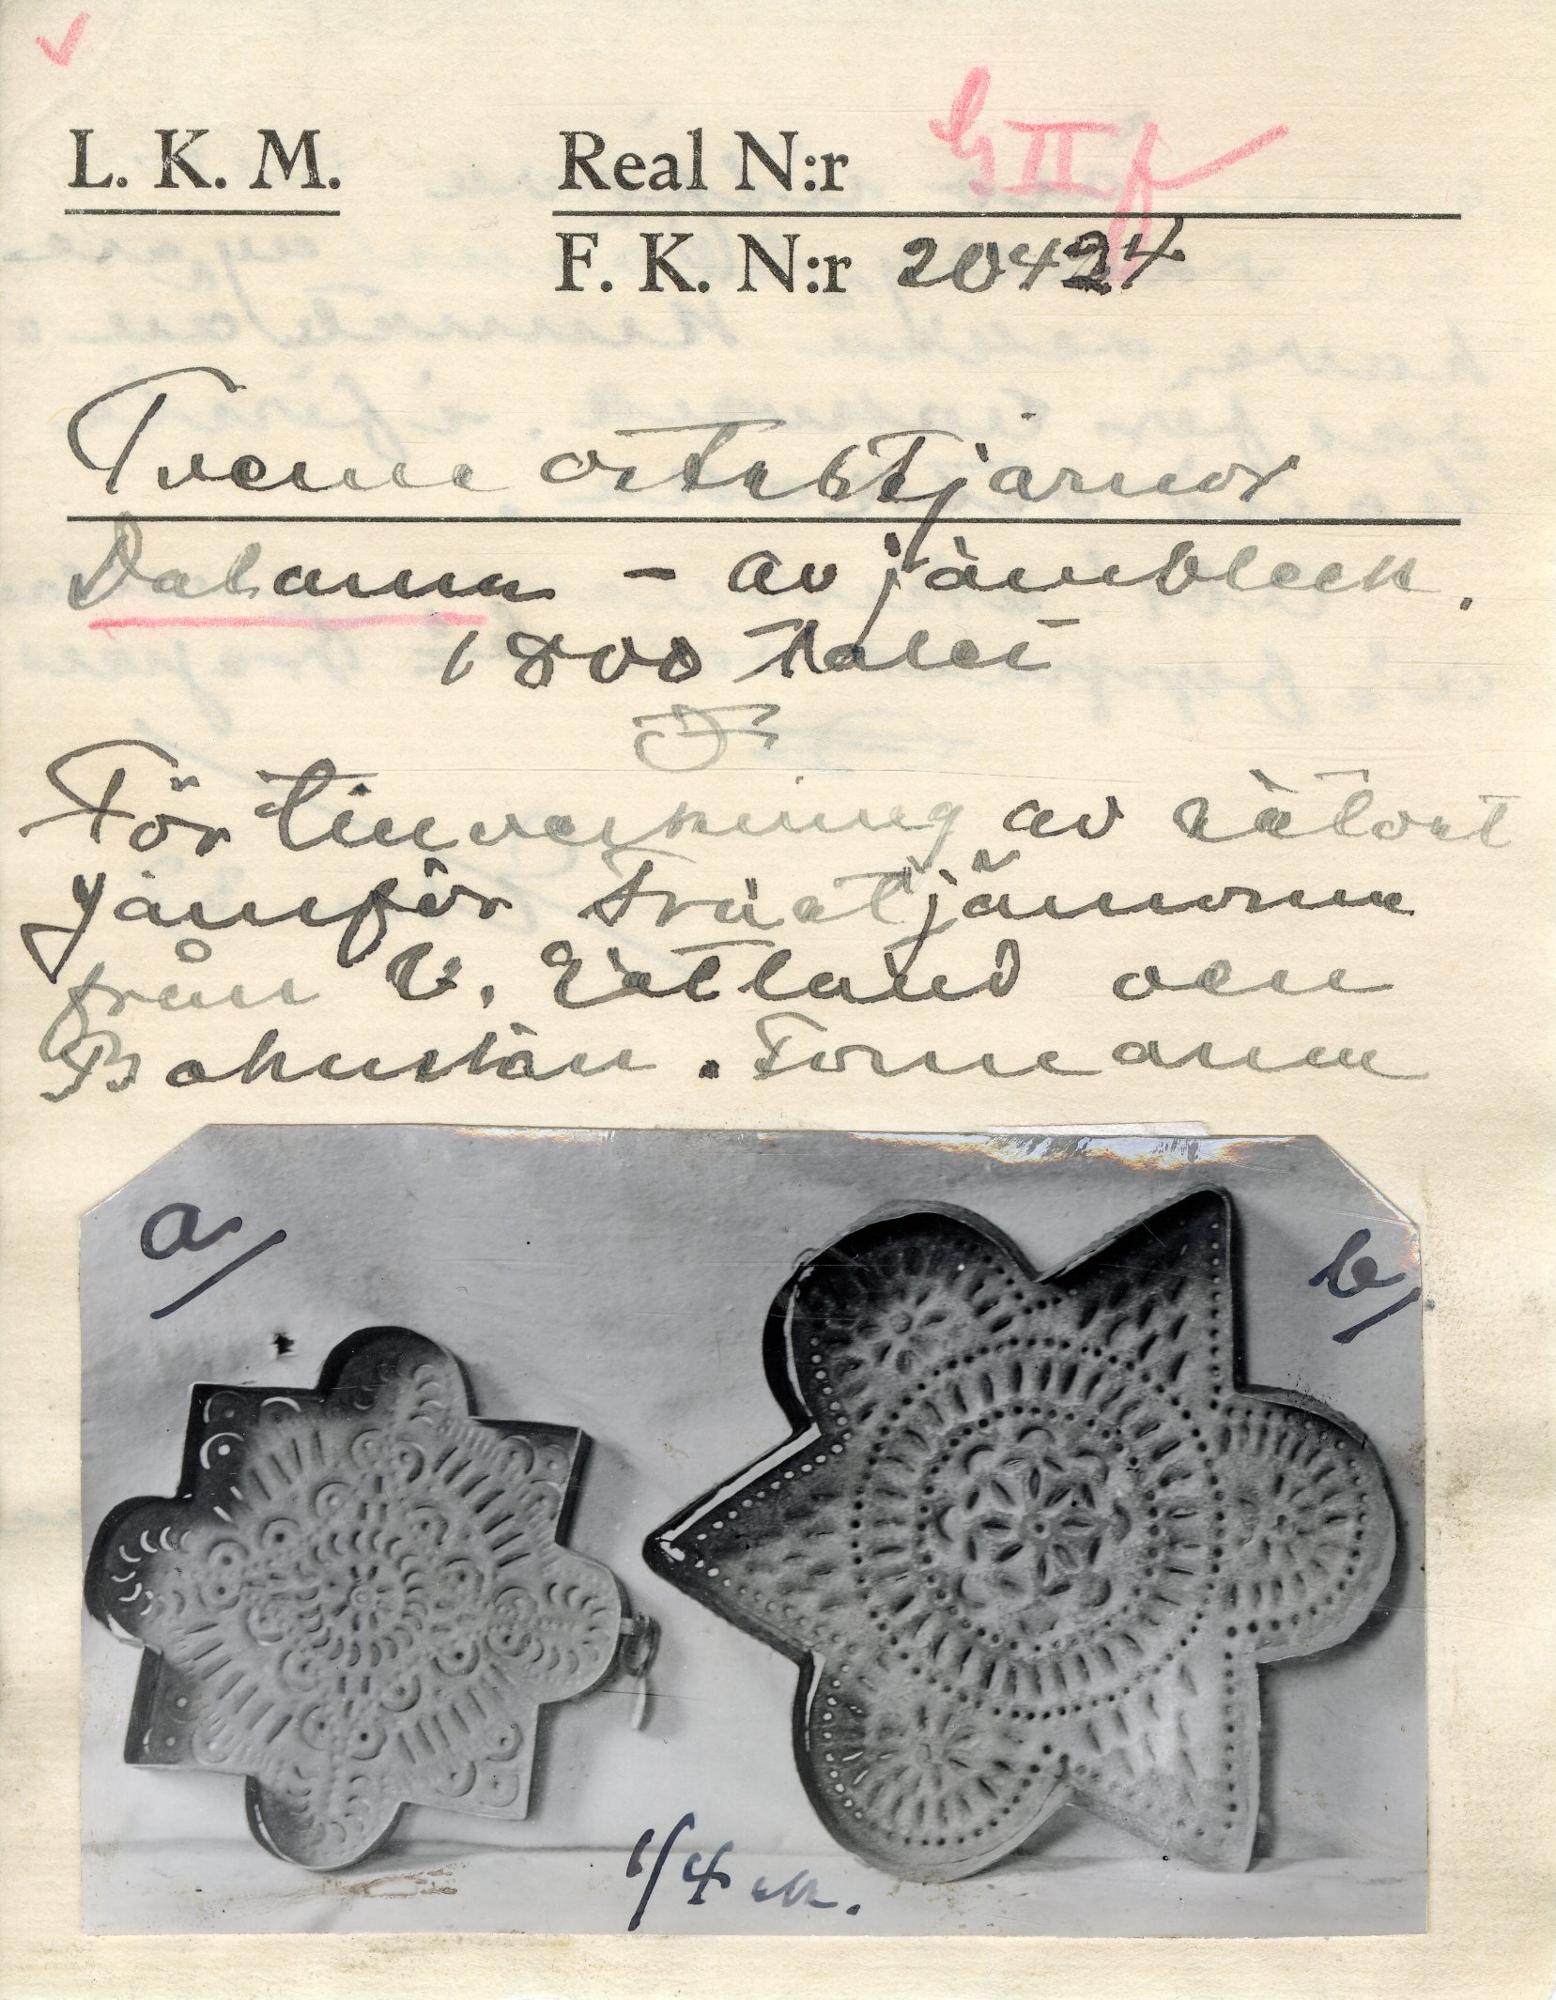 L. K. M. Real N:r G II f
F. K. N:r 20424
Tvenne ostestjärnor
Dalarna - av järnbleck.
1800 talet
För tillverkning av sötost
Jämför trästjärnorna
från V. Götland och
Bohuslän. Formarna
a/
b/
1/4 sk.